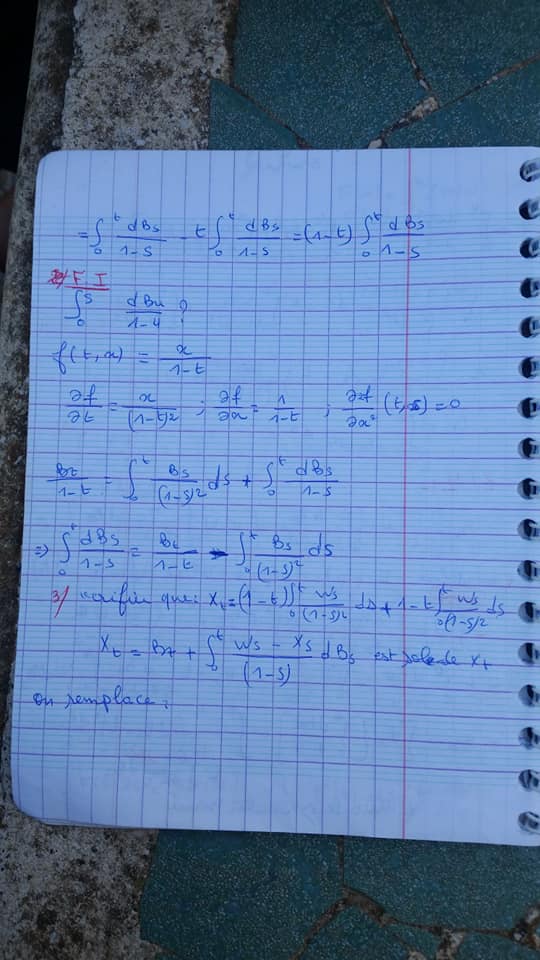 = ∫₀ᵗ dBs/(1-s) - t ∫₀ᵗ dBs/(1-s) = (1-t) ∫₀ᵗ dBs/(1-s)
2/ F I
∫₀ˢ dBu/(1-u) ?
f(t,x) = x/(1-t)
∂f/∂t = x/(1-t)² ; ∂f/∂x = 1/(1-t) ; ∂²f/∂x² (t,x) = 0
Bt/(1-t) = ∫₀ᵗ Bs/(1-s)² ds + ∫₀ᵗ dBs/(1-s)
=> ∫₀ᵗ dBs/(1-s) = Bt/(1-t) - ∫₀ᵗ Bs/(1-s)² ds
3/ vérifier que: Xt = (1-t) ∫₀ᵗ Ws/(1-s)² ds + 1-t) ∫₀ᵗ Ws/(1-s)² ds
Xt = Bt + ∫₀ᵗ (Ws - Xs)/(1-s) dBs est de Xt
On remplace: